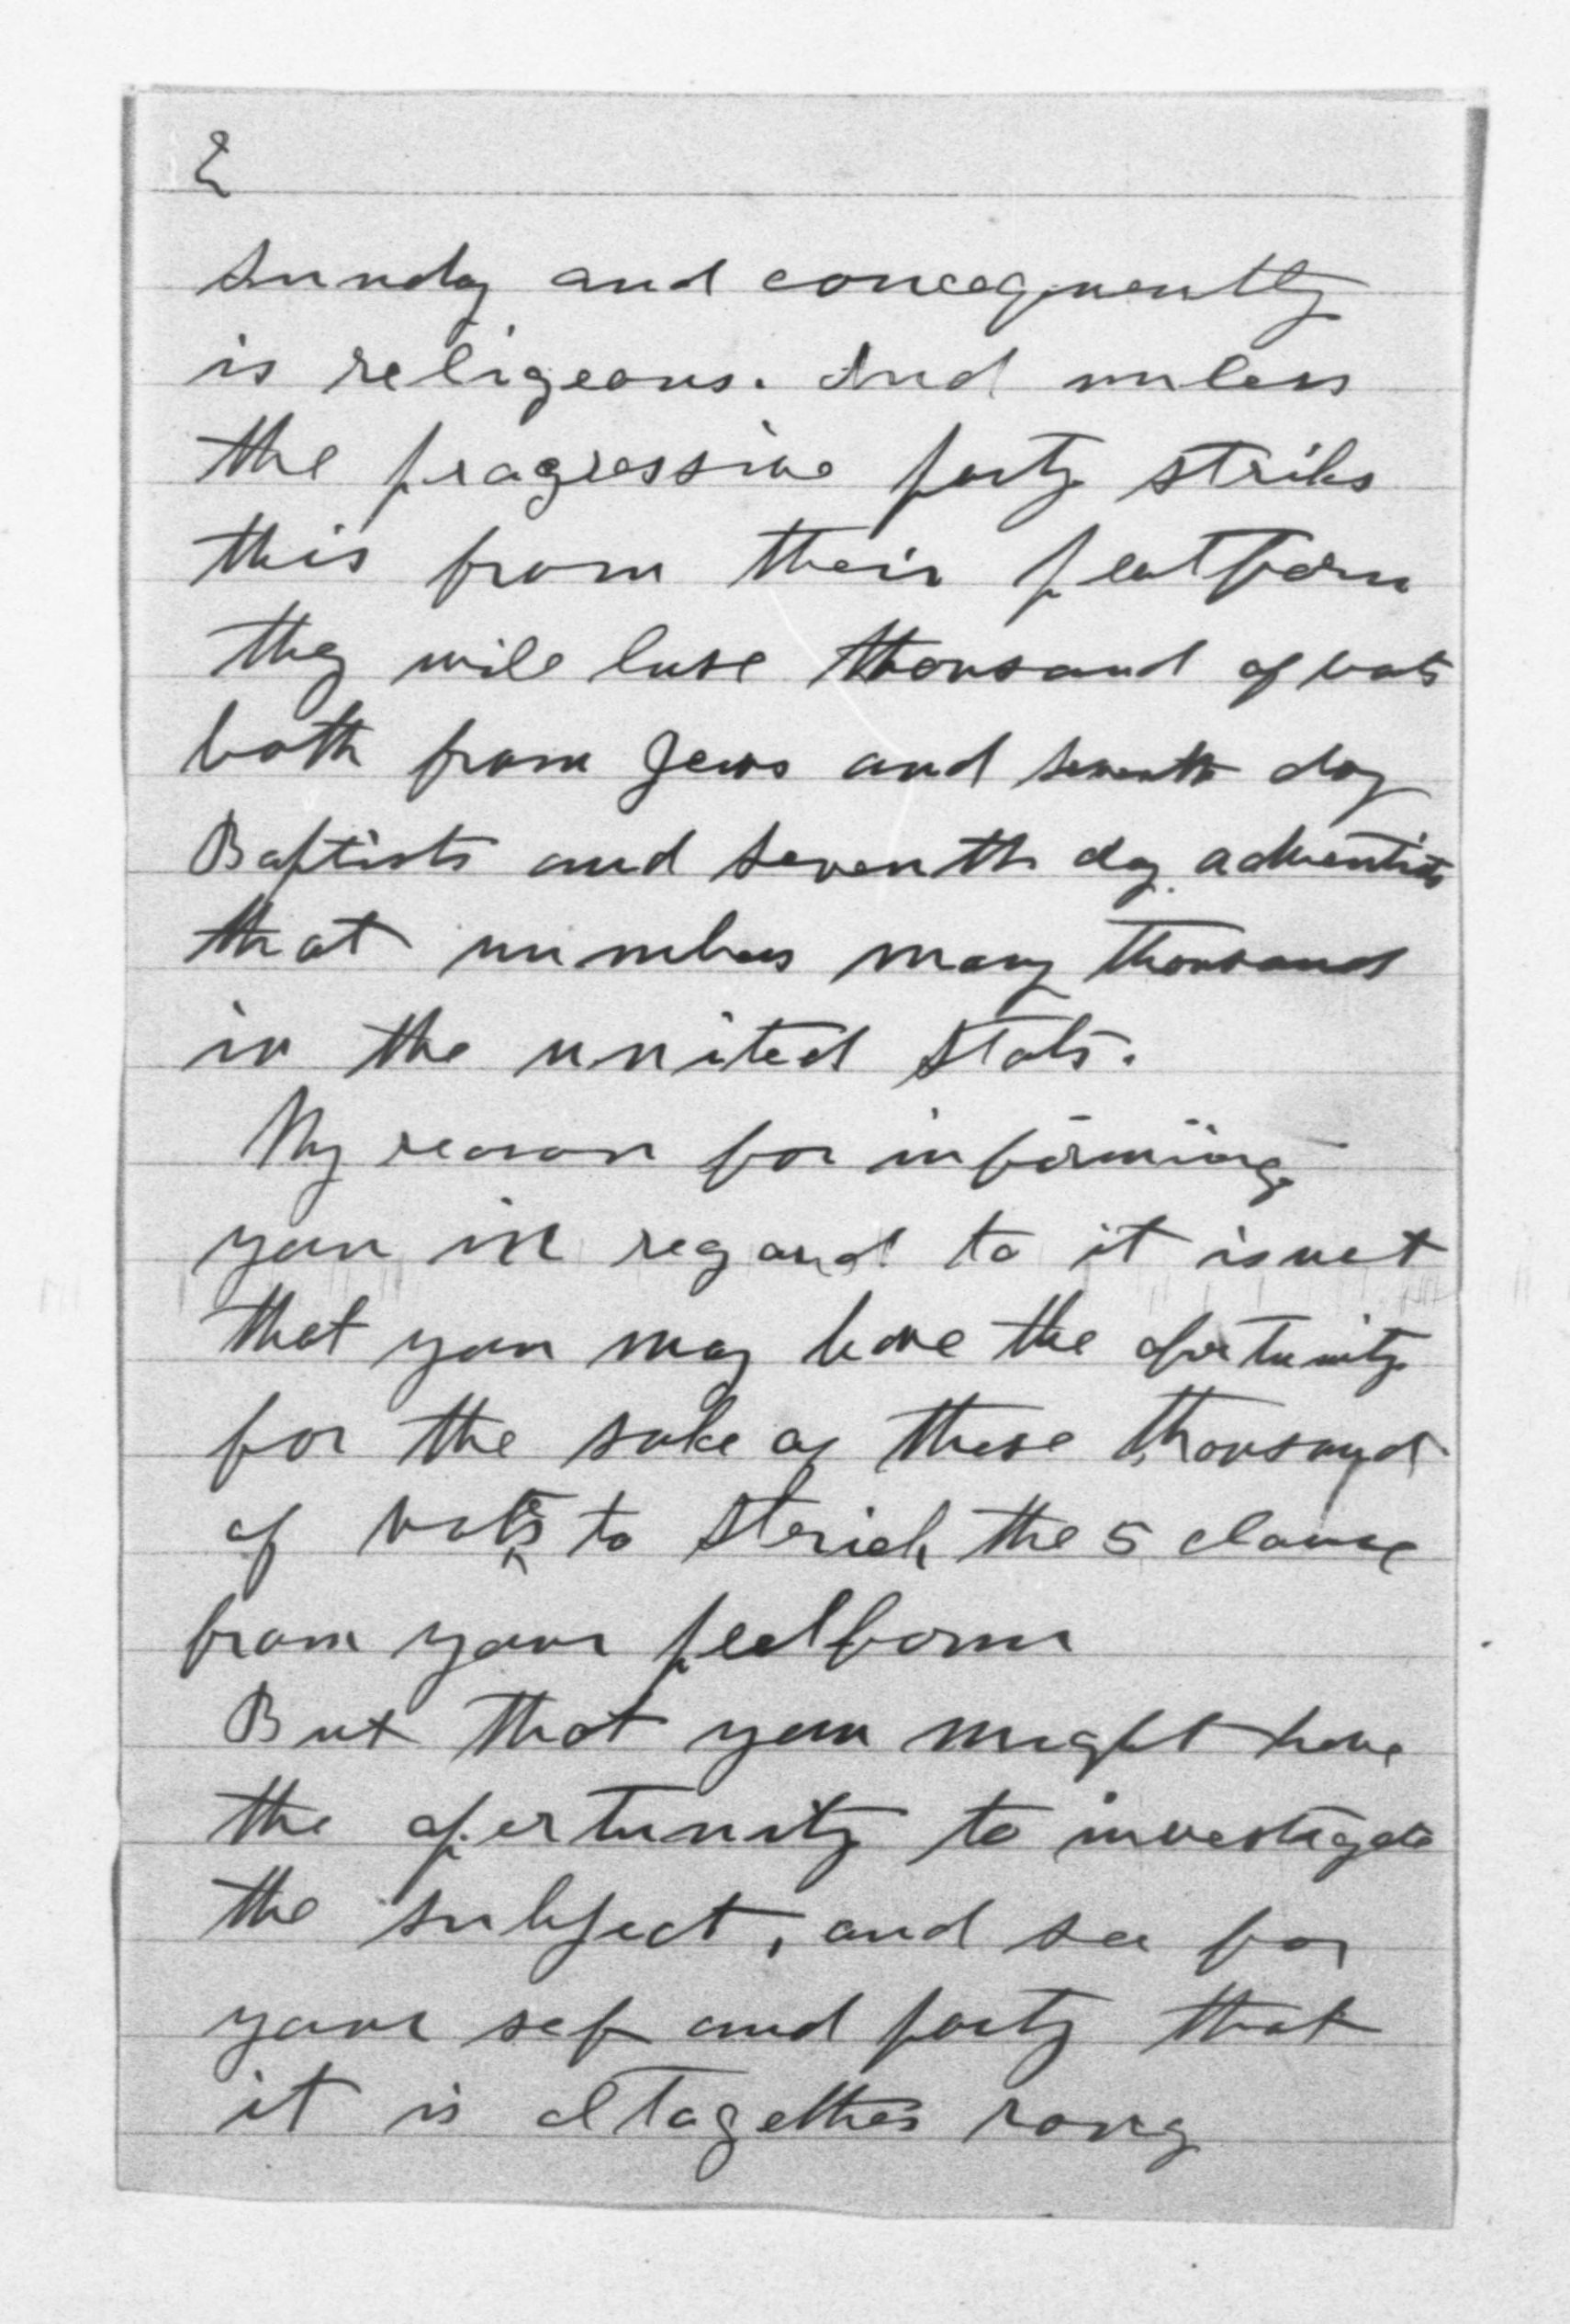 2
Sunday andConcequently
is religeous. And unless
the progressive party striks
this from their platform
they will luse thousand of vots
both from Jews and seventh day
Baptists and seventh day adventists
that numbers many thousand
in the united Stats.
My reason for informing
you in regard to it is not
that you may have the oportunity
for the sake of these thousand
of vots to strick the 5 clause
from your platform
But that you might have
the opertunity to investigate
the subject, and see for
your sef and party that
it is altagether rong